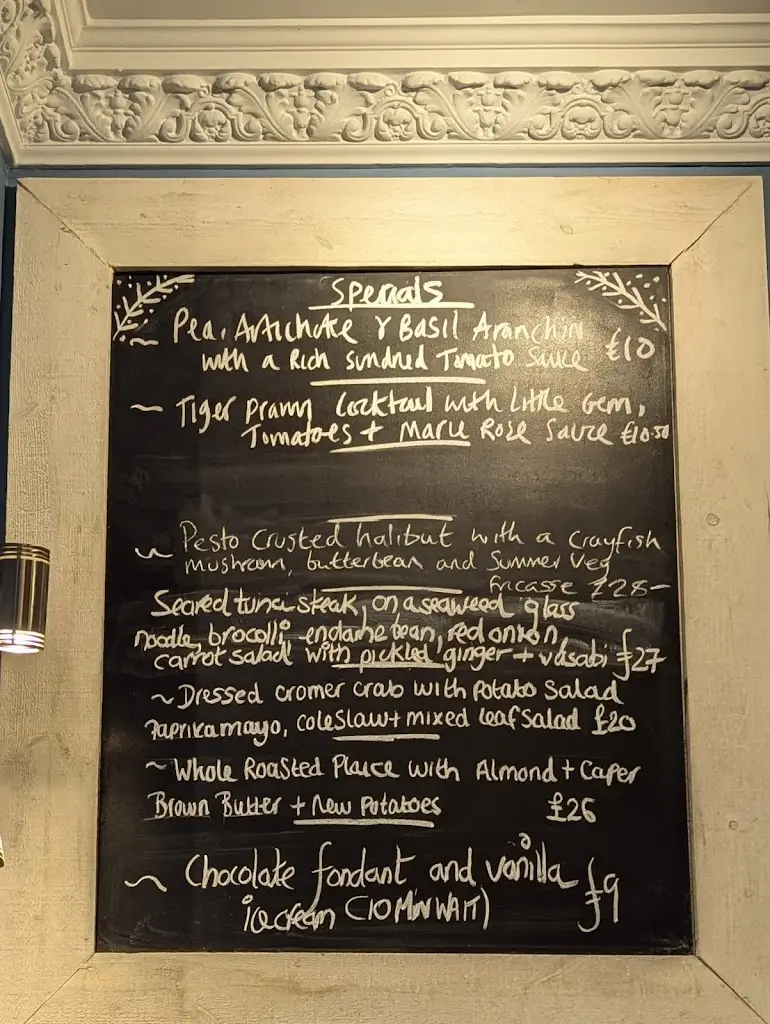 Specials
~ Pea, Artichoke & Basil Aranchini
with a Rich Sundried Tomato Sauce £10
~ Tiger Prawn Cocktail with Little Gem,
Tomatoes + Marie Rose Sauce £10.50
~ Pesto Crusted halibut with a Crayfish
mushroom, butterbean and Summer Veg
fricasse £28-
Seared tuna steak, on a seaweed glass
noodle, brocolli, endame bean, red onion,
carrot salad with pickled ginger + wasabi £27
~ Dressed cromer crab with potato salad
paprika mayo, coleslaw + mixed leaf salad £20
~ Whole Roasted Plaice with Almond + Caper
Brown Butter + New Potatoes £26
~ Chocolate fondant and vanilla
icecream (10 MIN WAIT) £9